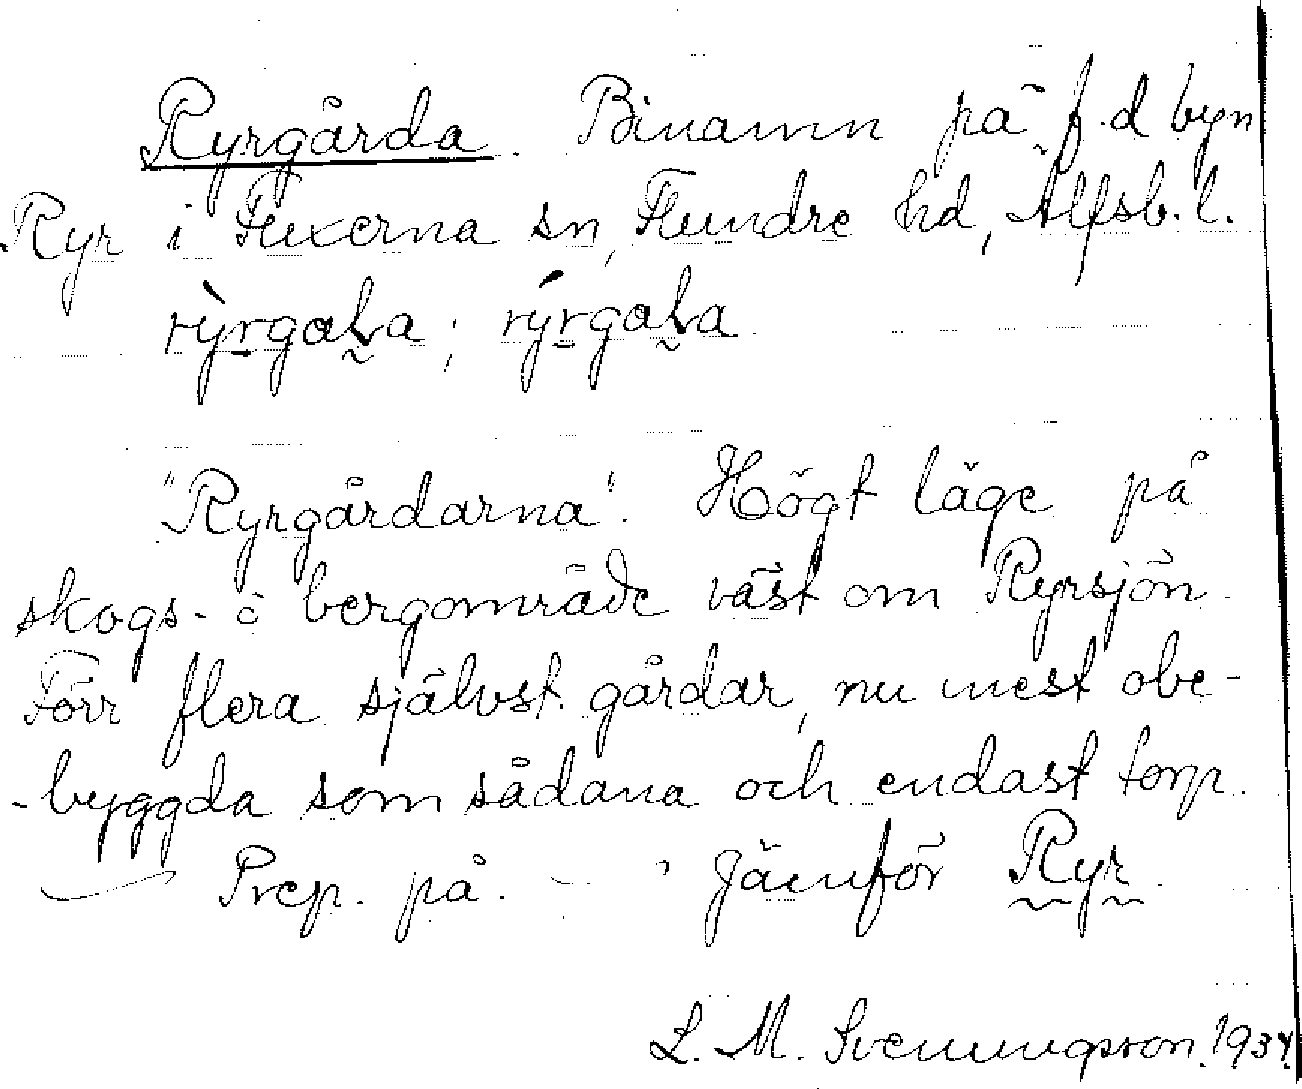 Ryrgårda. Binamn på f.d byn
Ryr i Fuxerna sn, Flundre hd, Älfsb. l.
rỳrgaɫa; rýrgaɫa
"Ryrgårdarna". Högt läge på
skogs- o bergområde väst om Ryrsjön.
Förr flera självst. gårdar, nu mest obe-
-byggda som sådana och endast torp.
— Prep. på. — Jämför Ryr.
L. M. Svenungsson. 1934.